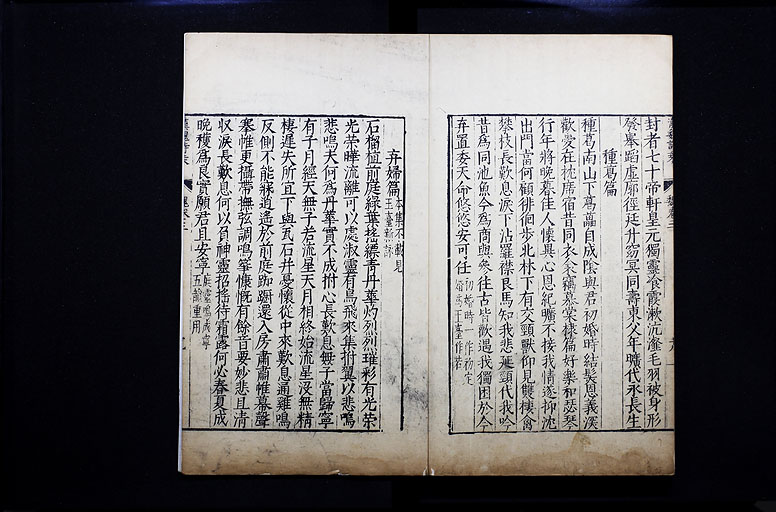 封者七十帝軒皇元獨靈飡霞漱沆瀣毛羽被身形
發舉蹈虛廓徑廷升窈冥同壽東父年曠代永長生
種葛篇
種葛南山下葛藟自成陰與君初婚時結髮恩義深
歡愛在枕席宿昔同衣衾竊慕棠棣篇好樂和瑟琴
行年將晚暮佳人懷異心恩紀曠不接我情遂抑沈
出門當何顧徘徊步北林下有交頸獸仰見雙棲禽
攀枝長歎息淚下沾羅襟良馬知我悲延頸代我吟
昔為同池魚今為商與參往古皆歡遇我獨困於今
弃置委天命悠悠安可任
初婚時一作初定
弃婦篇
本集不載見
玉臺新詠
石榴植前庭綠葉搖縹青丹華灼烈烈璀彩有光榮
光榮曄流離可以處淑靈有鳥飛來集拊翼以悲鳴
悲鳴夫何為丹華實不成拊心長歎息無子當歸寧
有子月經天無子若流星天月相終始流星沒無精
棲遲失所宜下與瓦石并憂懷從中來歎息通雞鳴
反側不能寐逍遙於前庭踟躕還入房肅肅帷幕聲
搴帷更攝帶撫弦調鳴箏慷慨有餘音要妙悲且清
收淚長歎息何以負神靈招搖待霜露何必春夏成
晚穫為良實願君且安寧
庭靈鳴成寧
五韻重用